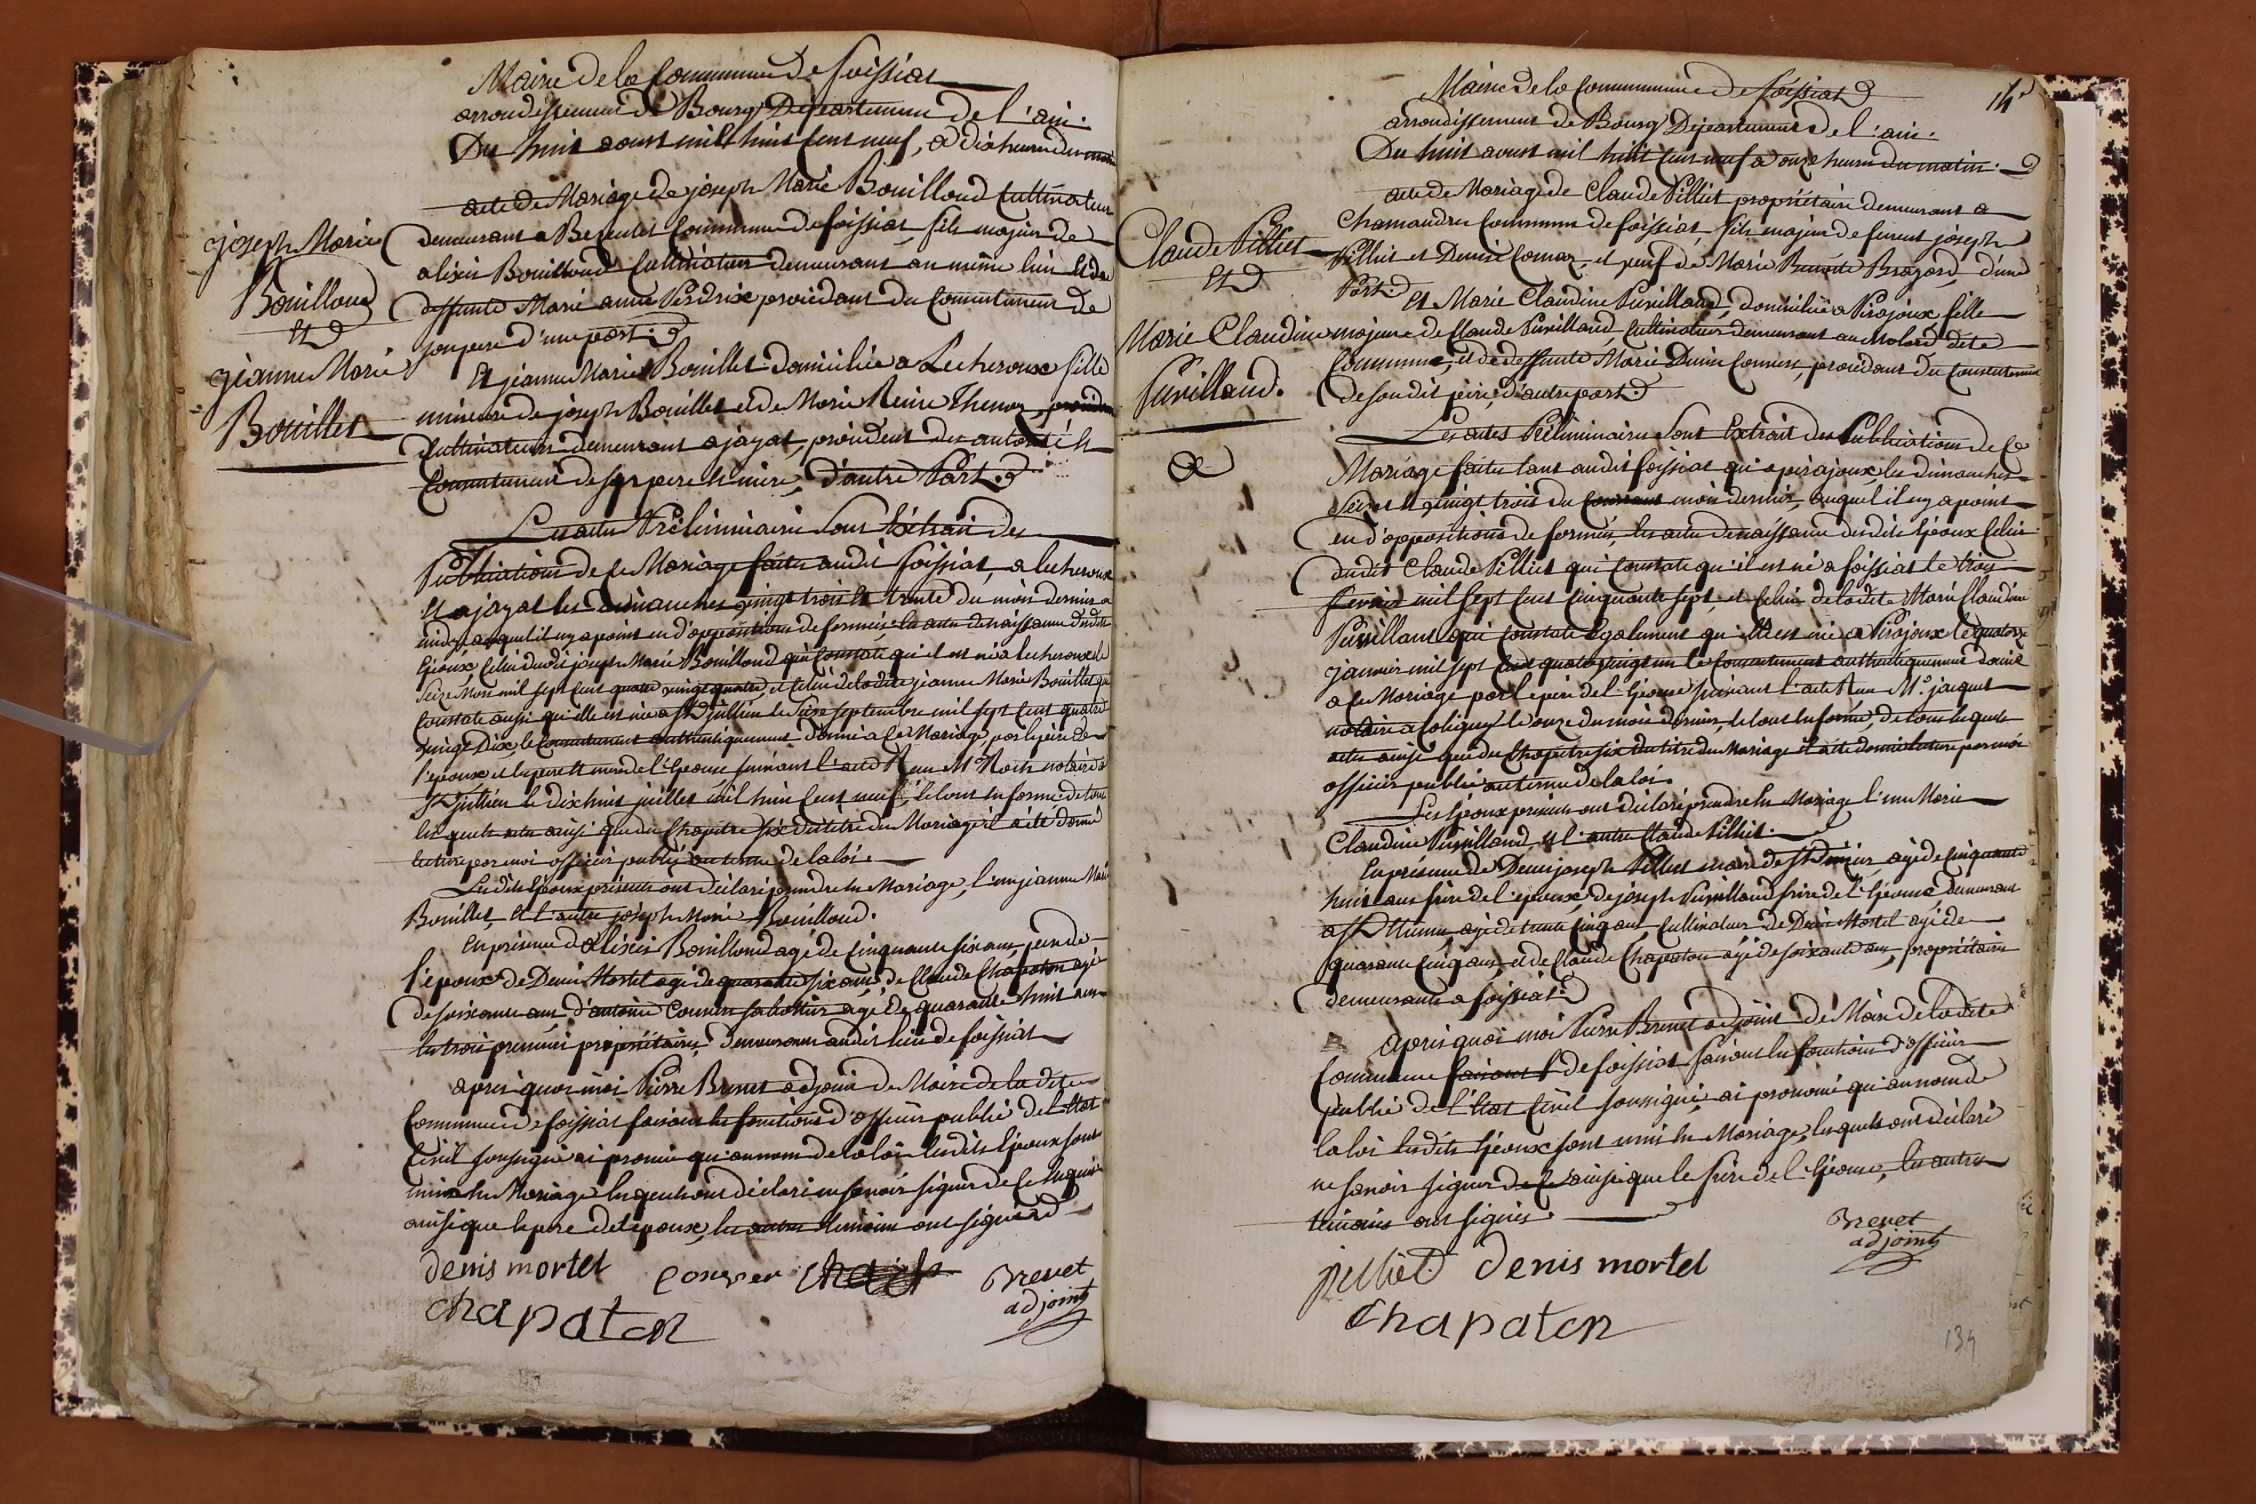 Mairie de la Commune de foissiat
arrondissement de Bourg Departement de l'ain.
Du huit aoust mil huit Cent neuf, a dix heures du matin
acte de Mariage de joseph Marie Bouilloud Cultivateur
joseph Marie
Bouilloud
Et
jeanne Marie
Bouillet
demeurant a Commune de foissiat, fils majeur de
alixis Bouilloud Cultivateur demeurant au même lieu Et de
deffunte Marie anne Perdrix procédant du Consentement de
son pere d'une part.
Et jeanne Marie Bouillet domiciliée a Lescheroux fille
mineure de joseph Bouillet et de Marie Reine Thenoz,
Cultivateurs demeurant a jayat, procédent des autorité Et
Consentement de ses pere et mere, d'autre Part.
Les actes Préliminaire sont Extrait des
Publications de ce Mariage faites audit foissiat, a lescheroux
Et a jayat les dimanches vingt trois Et trente du mois dernier a
midi, auquel il ny a point eu d'oppositions de formées, les actes de naissance desdits
Epoux, Celui dudit joseph Marie Bouilloud qui Constate qu'il est né a lescheroux le
seize Mars mil sept Cent quatre vingt quatre, et Celui de ladite jeanne Marie Bouillet qui
Constate aussi qu'elle est née a St jullien le septembre mil sept Cent quatre
vingt Dix, le Consentement authentiquement donné a ce Mariage par le père de
l'epoux et les pere Et mere de l'Epouse suivant l'acte Reçu Me notaire a
St jullien le dix huit juillet mil huit Cent neuf, le tout en forme de tous
les quels actes ainsi que du Chapitre six du titre du Mariage il a été donné
lecture par moi officier public au terme de la loi.
Lesdits Epoux présents ont déclaré prendre En Mariage, l'un jeanne Marie
Bouillet, Et l'autre joseph Marie Bouilloud.
En présence d'alixis Bouilloud agé de Cinquante six ans, pere de
l'epoux de Denis Mortel agé de quarante six ans, de Claude Chapaton agé
de soixante ans, d'antoine Convers sabottier agé de quarante huit ans
les trois premiers propriétaires, demeurans audit lieu de foissiat
apres quoi moi Pierre Brevet adjoint du Maire de ladite
Commune de foissiat faisant les fonctions d'officier public de l'Etat
Civil soussigné ai prononcé qu'au nom de la loi lesdits Epoux sont
unis En Mariage lesquels ont déclaré ne savoir signer de ce enquis
ainsi que le pere de l'epoux, les autres témoins ont signés
denis mortel Conver
chapaton
Brevet
adjoint
Mairie de la Commune de foissiat
arrondissement de Bourg Departement de l'ain.
Du huit aoust mil huit Cent neuf a onze heures du matin.
acte de Mariage de Claude Pilliet propriétaire demeurant a
Claude Pilliet
Et
Marie Claudine
Puvilland.
Chamandre Commune de foissiat, fils majeur de feu joseph
Pilliet et Denise et veuf de Marie Benoite d'une
Part.
Et Marie Claudine Puvilland, domiciliée a Pirajoux fille
majeure de Claude Puvilland, Cultivateur demeurant au Molard dite
Commune, et de deffunte Marie Denise Convers, procédant du Consentement
de son dit père, d'autre part.
Les actes Préliminaires sont Extrait des Publications de ce
Mariage faites tant audit foissiat qu'a pirajoux, les dimanches
seize Et vingt trois du mois dernier, auquel il ny a point
eu d'oppositions de formées, les actes de naissance desdits Epoux Celui
dudit Claude Pilliet qui Constate qu'il est né a foissiat le trois
fevrier mil sept Cent Cinquante sept, et Celui de ladite Marie Claudine
Puvilland qui Constate Egalement qu'elle est née a Pirajoux le quatorze
janvier mil sept Cent quatre vingt un le Consentement authentiquement donné
a ce Mariage par le père de l'Epouse suivant l'acte Reçu Me jacquet
notaire a Coligny le onze du mois dernier, le tout en forme, de tous lesquels
actes ainsi que du Chapitre six du titre du Mariage il a été donné lecture par moi
officier public au terme de la loi.
Les Epoux présents ont déclaré prendre En Mariage l'un Marie
Claudine Puvilland, et l'autre Claude Pilliet.
En présence de Denis joseph Pilliet maire de St agé de Cinquante
huit ans frère de l'epoux, de joseph Puvilland frère de l'Epouse, demeurant
a St agé de trente Cinq ans, Cultivateur de Denis Mortel agé de
quarante Cinq ans, et de Claude Chapaton agé de soixante ans, propriétaires
demeurants a foissiat.
apres quoi moi Pierre Brevet adjoint de Maire de ladite
Commune faisant de foissiat faisant les fonctions d'officier
public de l'Etat Civil soussigné, ai prononcé qu'au nom de
la loi lesdits Epoux sont unis En Mariage, lesquels ont déclaré
ne savoir signer de ce ainsi que le frère de l'Epouse, les autres
témoins ont signés.
pilliet denis mortel
Brevet
adjoint
chapaton
139